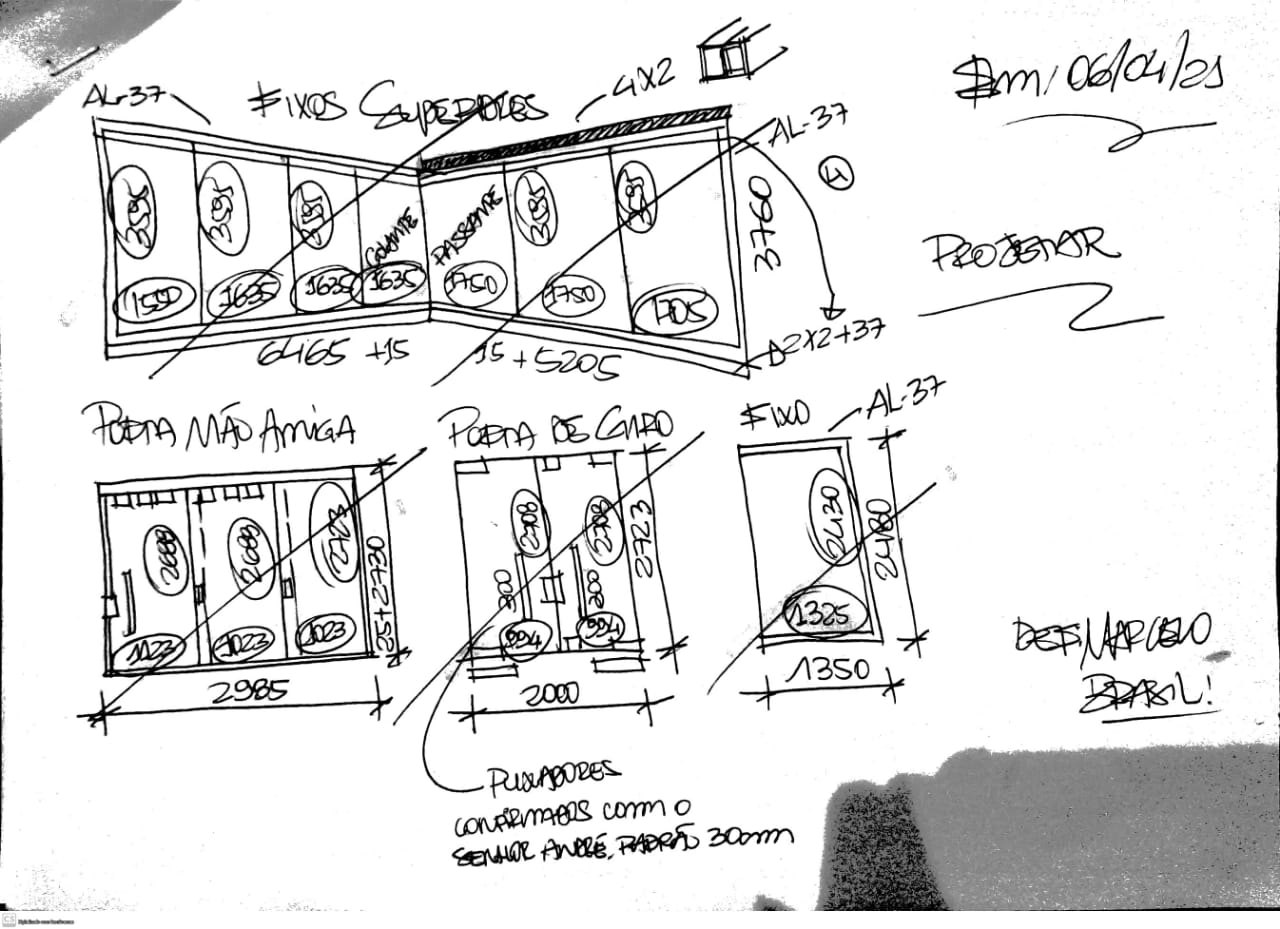 Em, 06/04/21
AL-37
FIXOS SUPERIORES
4X2
AL-37
4
3595
3595
3595
3595
3595
COLANTE
PASSANTE
3760
1550
1635
1635
1635
1750
1750
1705
PROJETAR
6465 +15
15 + 5205
2X2+37
PORTA MÃO AMIGA
PORTA DE GIRO
FIXO
AL-37
2688
2688
2723
25+2730
1023
1023
1023
2985
2708
2708
2723
300
300
994
994
2000
2430
2480
1325
1350
MARCELO
BRASIL!
PUXADORES
CONFIRMADOS COM O
SENHOR ANDRÉ, PADRÃO 30mm
CS